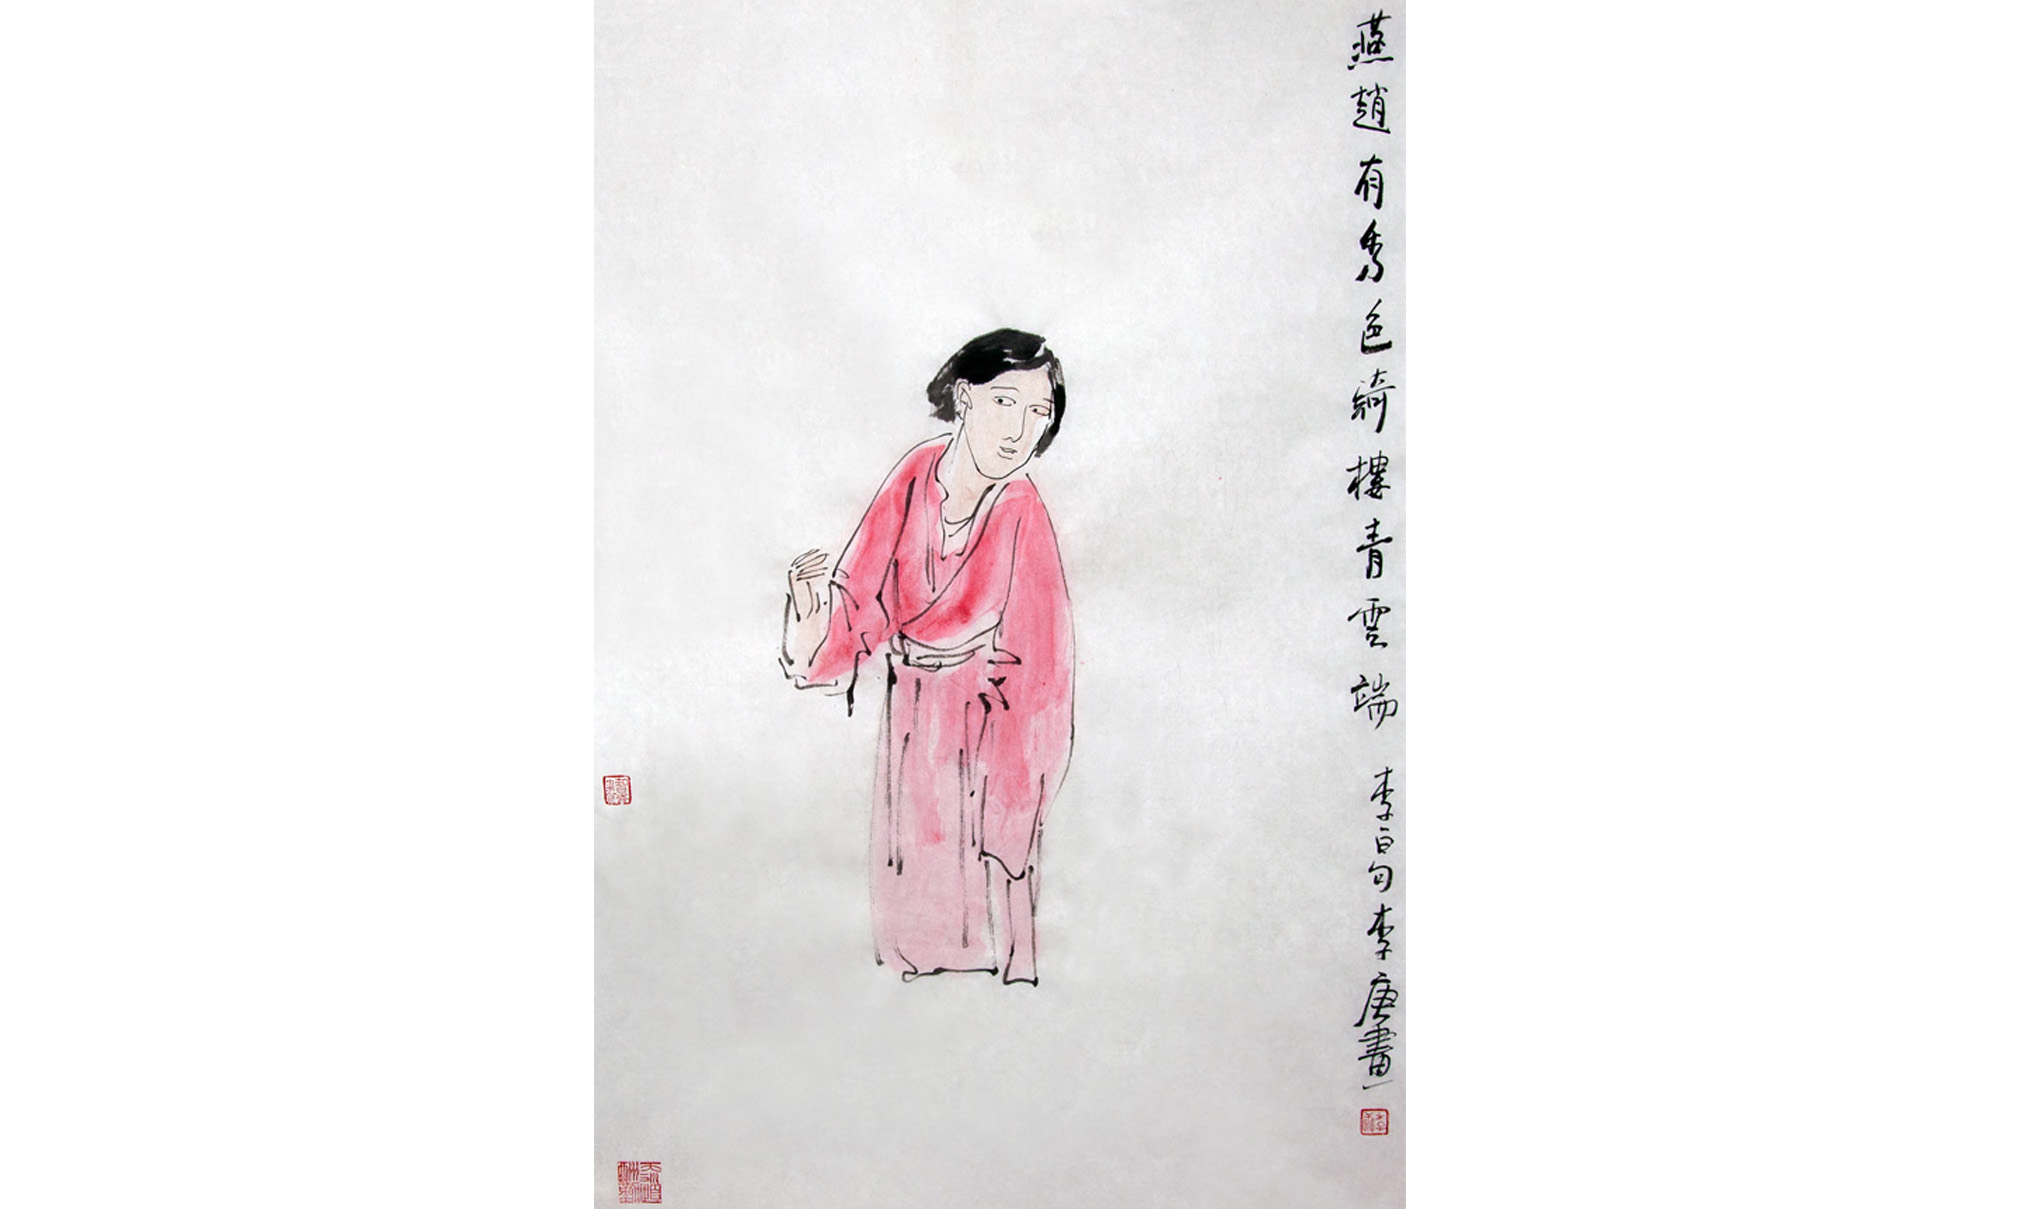 燕趙有秀色綺樓青雲端 李白句李唐畫